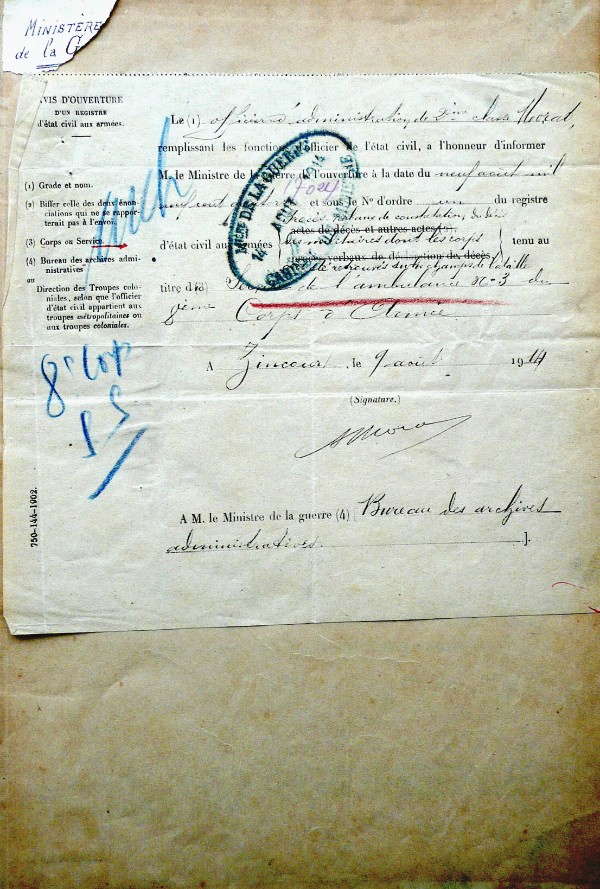 MINISTÈRE
de la G
AVIS D'OUVERTURE
D'UN REGISTRE
d'état civil aux armées.
(1) Grade et nom.
(2) Biffer celle des deux énonciations qui ne se rapporterait pas à l'envoi.
(3) Corps ou Service.
(4) Bureau des archives administratives
ou
Direction des Troupes coloniales, selon que l'officier d'état civil appartient aux troupes métropolitaines ou aux troupes coloniales.
Le (1) officier d'administration de 2ème classe Morat,
remplissant les fonctions d'officier de l'état civil, a l'honneur d'informer
M. le Ministre de la guerre de l'ouverture à la date du neuf août mil
neuf cent quatorze et sous le No d'ordre un du registre
procès verbaux de constatation de décès
actes de décès et autres actes
d'état civil aux armées des militaires dont les corps tenu au
procès-verbaux de déclaration de décès
été retrouvés sur les champs de bataille
titre d(3) Service de l'ambulance No 3 du
8ème Corps d'Armée
A Zincourt, le 9 août 1914
(Signature.)
AMorat
A M. le Ministre de la guerre (4) [Bureau des archives
administratives ].
MRE DE LA GUERRE
14 AOUT 14
8e Corp
SS
750-144-1902.